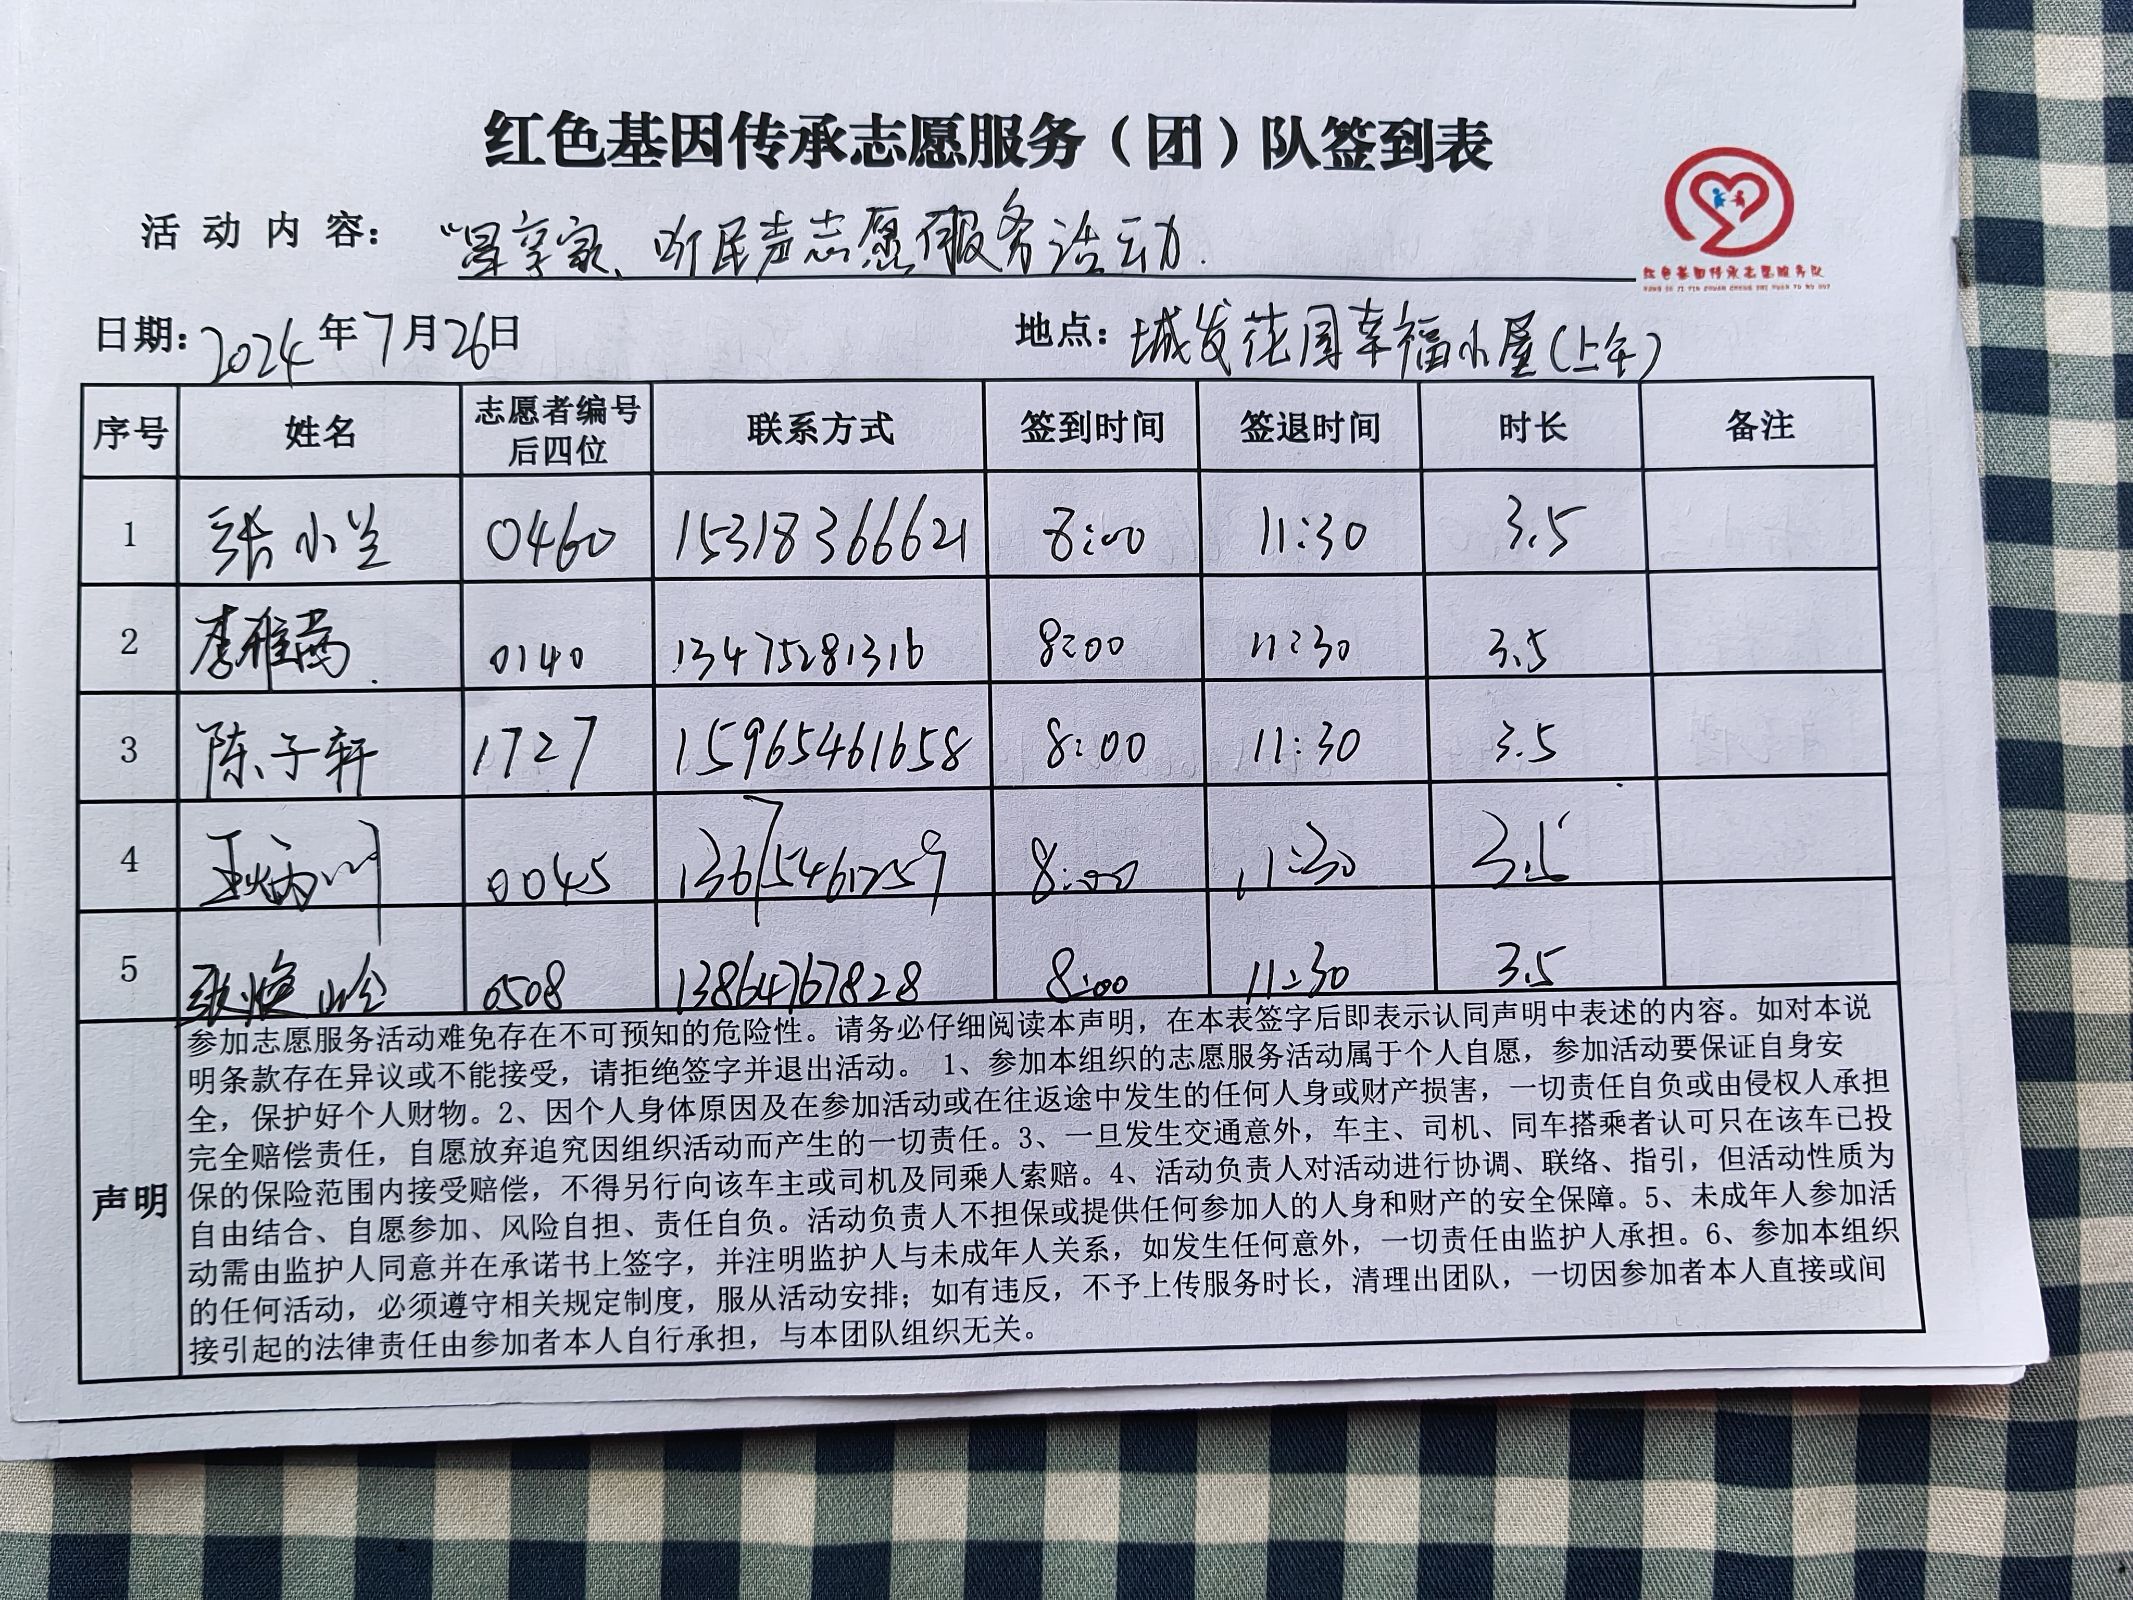 红色基因传承志愿服务（团）队签到表
活动内容：“星享家、听民声志愿服务活动.
红色基因传承志愿服务队
日期：2024年7月26日 地点：城发花园幸福小屋(上午)
序号 姓名 志愿者编号后四位 联系方式 签到时间 签退时间 时长 备注
1 张小兰 0460 15318366621 8:00 11:30 3.5
2 李雅茜 0140 13475281316 8:00 11:30 3.5
3 陈子轩 1727 15965461658 8:00 11:30 3.5
4 王炳川 0045 13675461259 8:00 11:30 3.5
5 0508 13864767828 8:00 11:30 3.5
声明
参加志愿服务活动难免存在不可预知的危险性。请务必仔细阅读本声明，在本表签字后即表示认同声明中表述的内容。如对本说
明条款存在异议或不能接受，请拒绝签字并退出活动。 1、参加本组织的志愿服务活动属于个人自愿，参加活动要保证自身安
全，保护好个人财物。2、因个人身体原因及在参加活动或在往返途中发生的任何人身或财产损害，一切责任自负或由侵权人承担
完全赔偿责任，自愿放弃追究因组织活动而产生的一切责任。3、一旦发生交通意外，车主、司机、同车搭乘者认可只在该车已投
保的保险范围内接受赔偿，不得另行向该车主或司机及同乘人索赔。4、活动负责人对活动进行协调、联络、指引，但活动性质为
自由结合、自愿参加、风险自担、责任自负。活动负责人不担保或提供任何参加人的人身和财产的安全保障。5、未成年人参加活
动需由监护人同意并在承诺书上签字，并注明监护人与未成年人关系，如发生任何意外，一切责任由监护人承担。6、参加本组织
的任何活动，必须遵守相关规定制度，服从活动安排；如有违反，不予上传服务时长，清理出团队，一切因参加者本人直接或间
接引起的法律责任由参加者本人自行承担，与本团队组织无关。